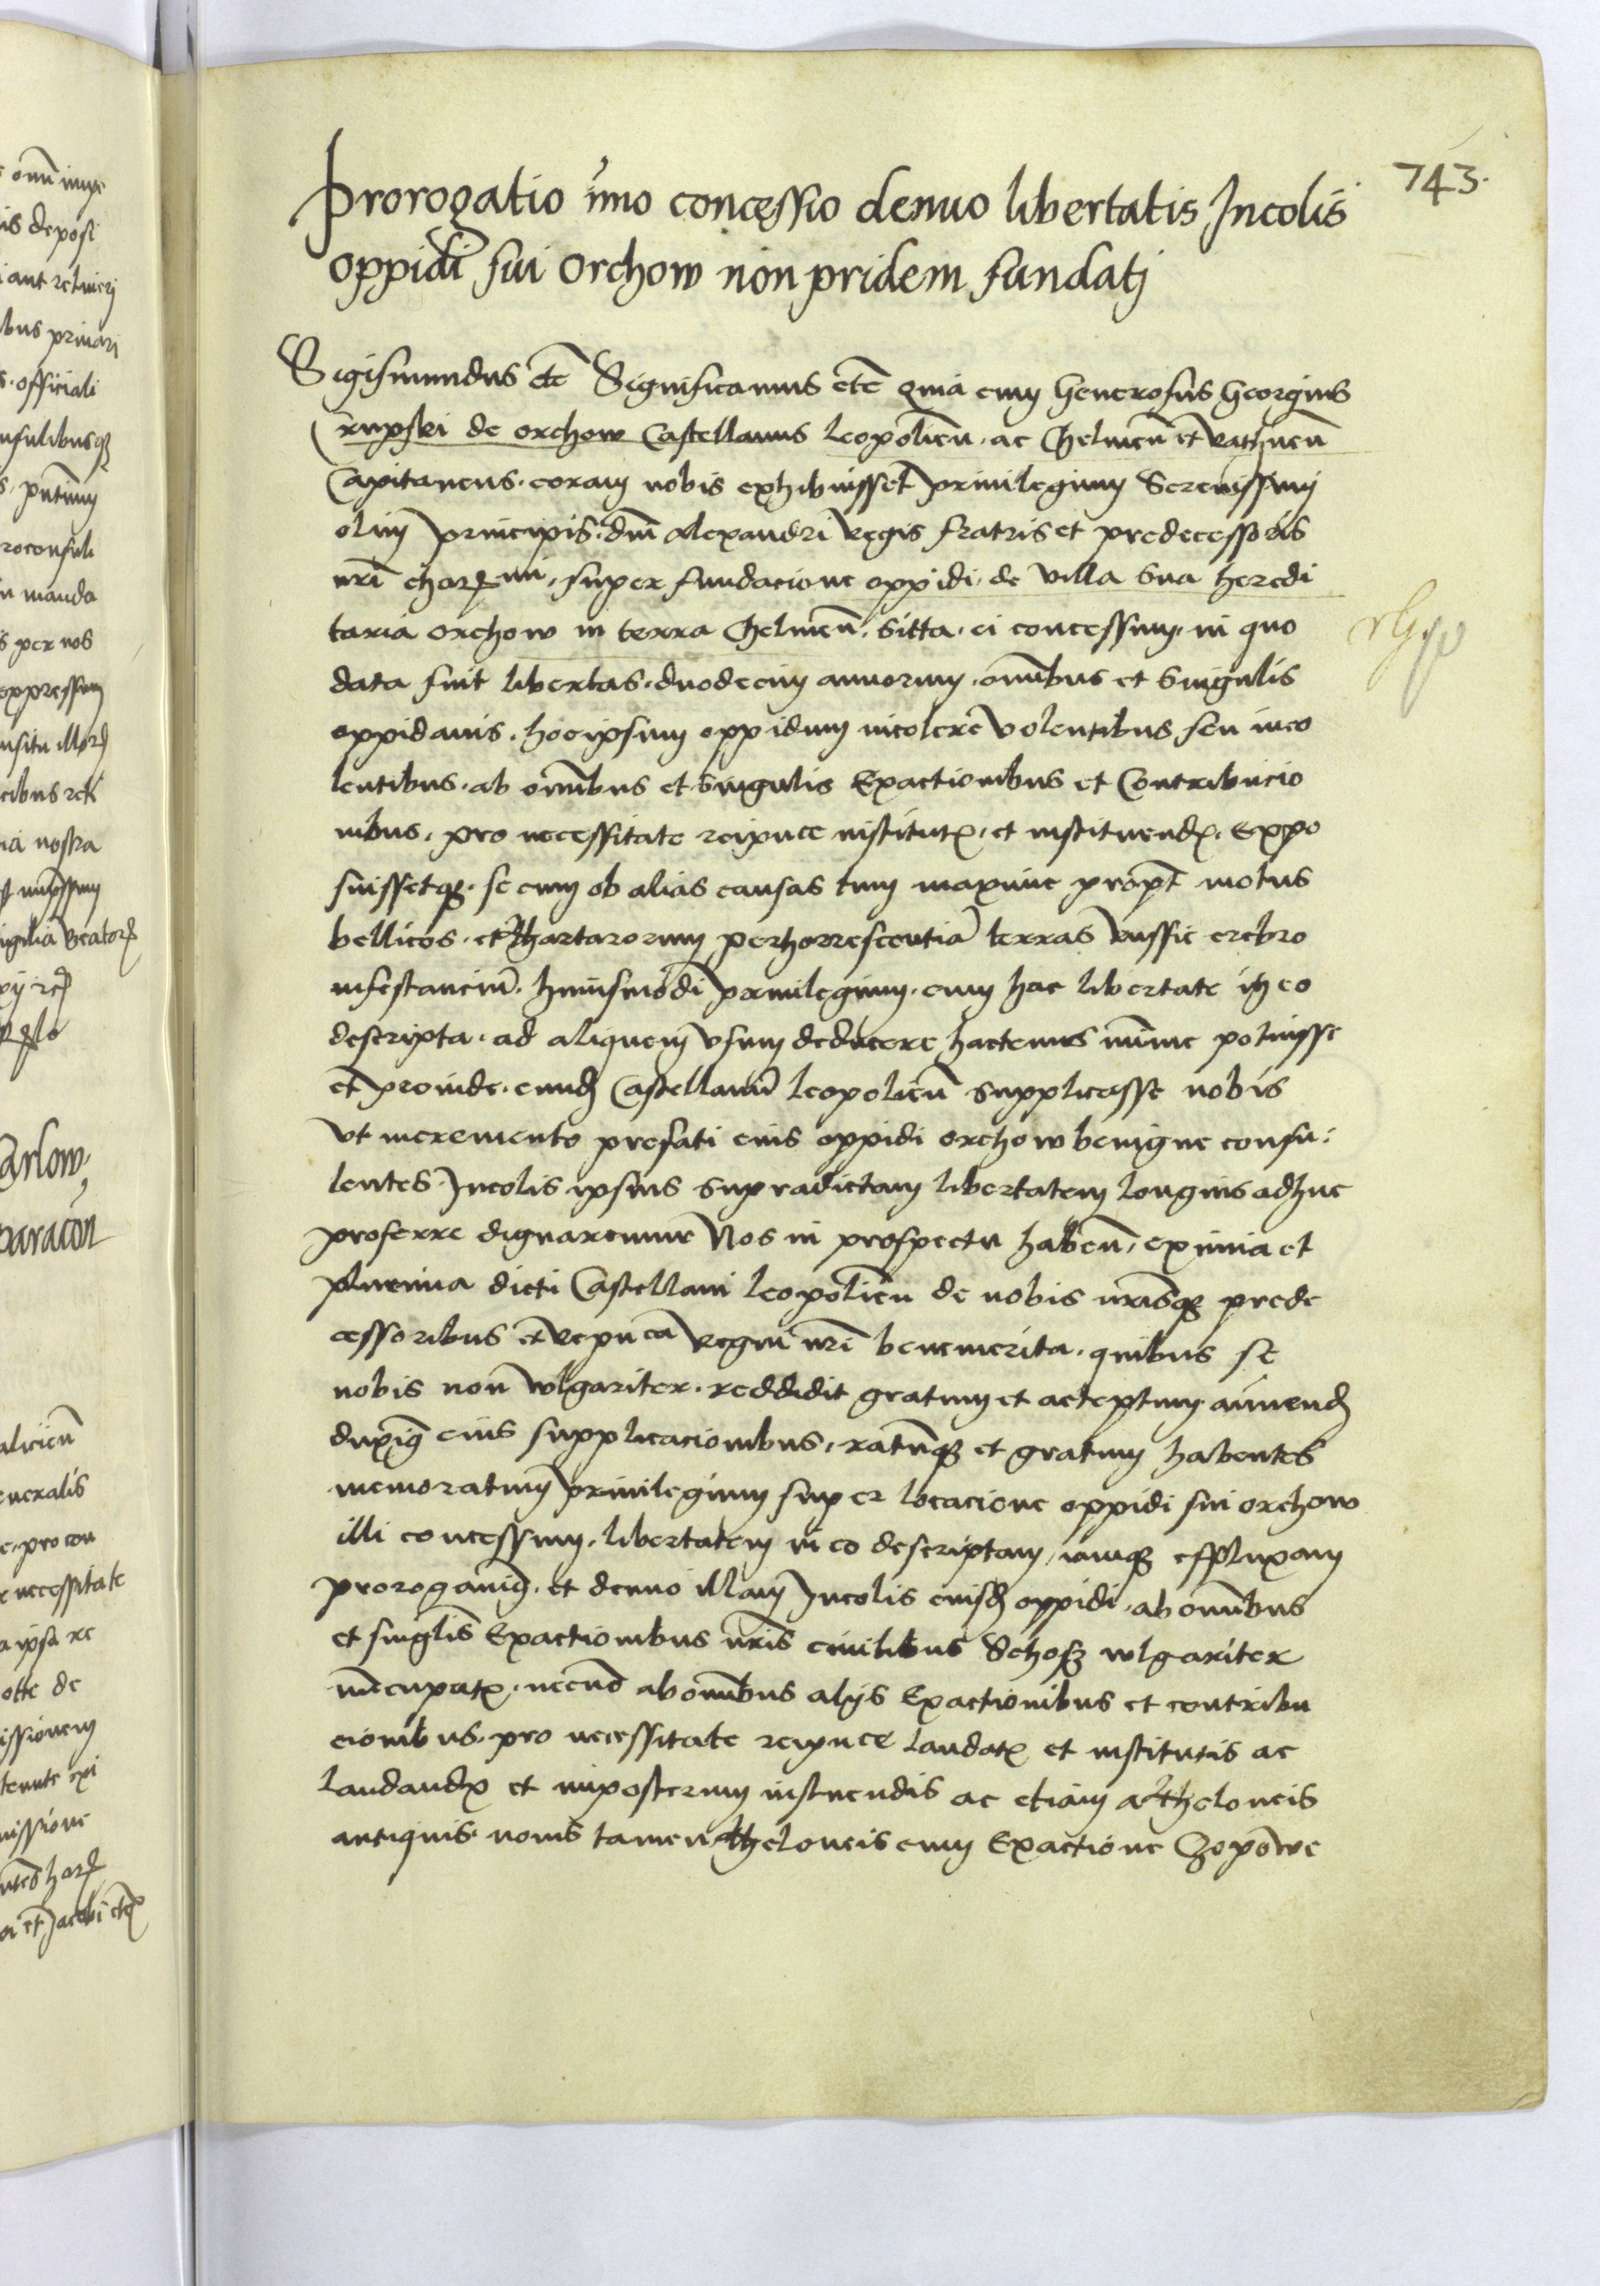 743.
Prorogatio imo concessio denuo libertatis Incolis
oppidi sui Orchow non pridem fundatj
Sigismundus etc Significamus etc quia cum Generosus Georgius
Crupski de orchow Castellanus leopolien. ac Chelmen et rathnen
Capitaneus. coram nobis exhibuisset privilegium Serenissimi
olim principis. dni Alexandri regis fratris et predecessoris
nri charmi. super fundacione oppidi. de villa sua heredi
taria orchow in terra Chelmen. sitta. ei concessum. in quo
data fuit libertas. duodecim annorum. omnibus et singulis
oppidanis. hocipsum oppidum incolere volentibus seu inco
lentibus. ab omnibus et singulis Exactionibus et Contribucio
nibus. pro necessitate reipuce institutis. et instituendis. Expo
suissetque. se cum ob alias causas tum maxime propt motus
bellicos. et Thartarorum perhorrescentia terras russie crebro
infestancium. huiusmodi privilegium. cum hac libertate in eo
descripta. ad aliquem usum deducere hactenus minime potuisse
et proinde. eundem Castellanum leopolien supplicasse nobis
Vt incremento prefati eius oppidi orchow benigne consu:
lentes. Incolis ipsius supradictam libertatem longius adhuc
proferre dignaremur Nos in prospectu haben. eximia et
plurima dicti Castellani leopolien de nobis nrisque prede
cessoribus et repuca regni nri benemerita. quibus se
nobis non vlgariter. reddidit gratum et acceptum. annuend
duximus eius supplicacionibus. ratumque et gratum habentes
memoratum privilegium super locacione oppidi sui orchow
illi concessum. libertatem in eo descriptam, iamque effluxam
prorogavimus. et denuo illam Incolis eiusdem oppidi. ab omnibus
et singlis Exactionibus nris civilibus Schosz wlgariter
nuncupatis. necnon ab omnibus alijs Exactionibus et contribu
cionibus. pro necessitate reipuce laudatis et institutis ac
laudandis et imposterum instuendis ac etiam a Theloneis
antiquis. novis tamen Theloneis cum Exactione Czopowe